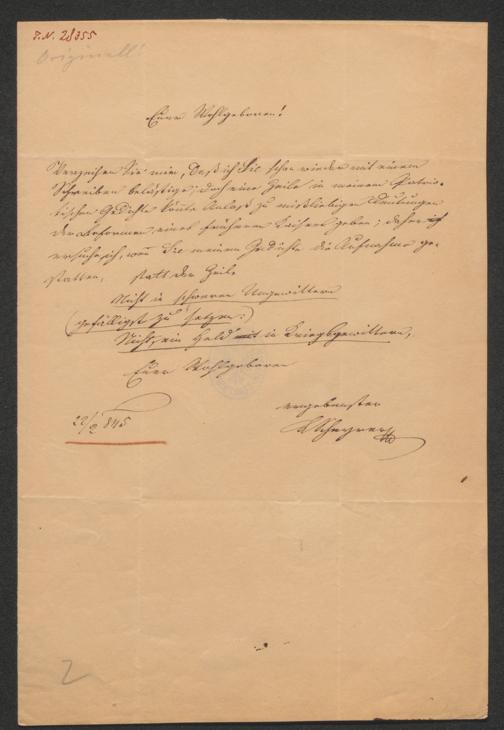 I.N. 28355
Originell!
Euer Wohlgeboren!
Verzeihen Sie mir, daß ich Sie schon wieder mit einem
Schreiben belästige; doch eine Zeile in meinem Patrio-
tischen Gedichte könnte Anlaß zu mißliebigen Deutungen
der Reformen eines früheren Kaisers geben; daher ich
ersuche ich, wenn Sie meinem Gedichte die Aufnahme ge-
statten, statt der Zeile
Nicht in schweren Ungewittern
(gefälligst zu setzen:)
Nicht, ein Held mit in Kriegsgewittern,
Euer Wohlgeboren
ergebenster
22/2 845
2